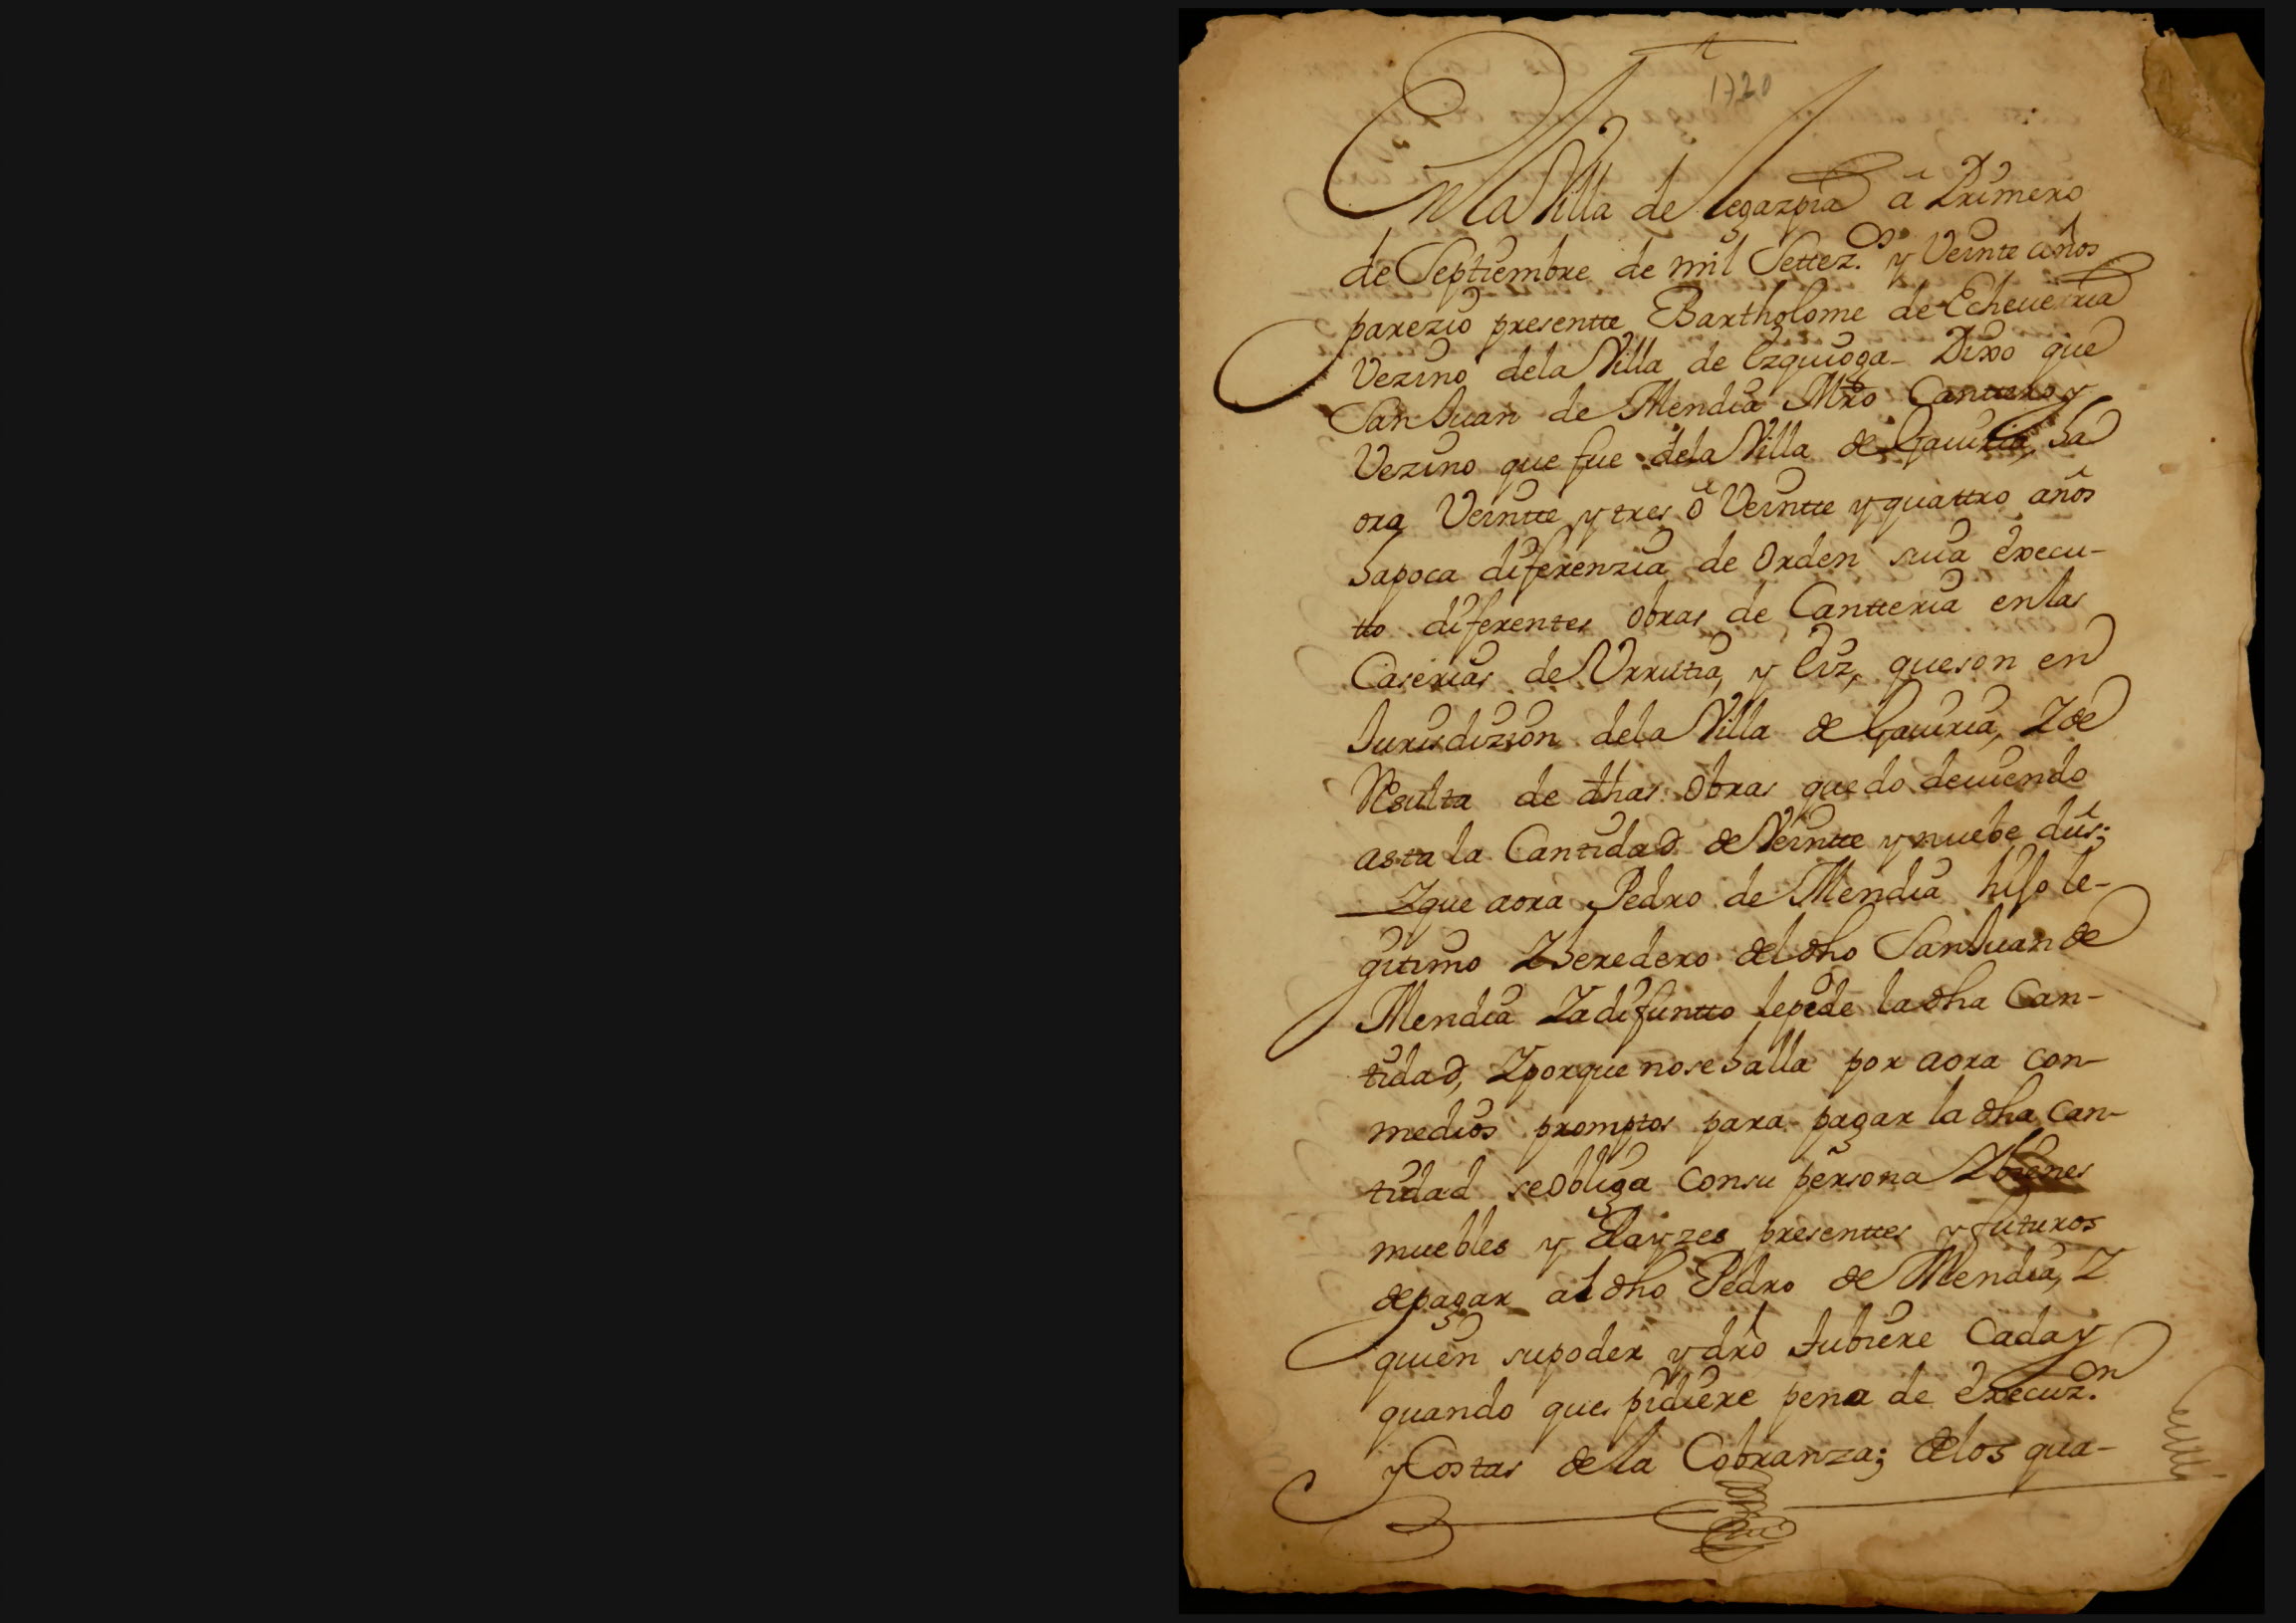 1720
En la Villa de Legazpia â Primero
de Septiembre de mil Settez.os y Veinte años
parezio presentte Bartholome de Echeuerria
Vezino dela Villa de Ezquioga - Dixo que
San Juan de Mendia Mro Cantero y
Vezino que fue dela Villa de Gauiria, ha
ora Veintte y tres ô Veintte y quattro años
hapoca diferenzia de Orden sua execu-
tto diferentes Obras de Cantteria enlas
Caserias de Vrrutia, y Eiz, queson en
Jurisdizion dela Villa de Gauiria, Y de
Resulta de dhas Obras quedo deuiendo
asta la Cantidad de Veintte y nuebe dus;
Yque aora Pedro de Mendia hijo le-
gitimo Yheredero deldho SanJuan de
Mendia Yadifuntto lepide ladha Can-
tidad, Yporque nose halla por aora con-
medios promptos para pagar la dha Can-
tidad seObliga Consu persona Ybienes
muebles y Rayzes presenttes y futuros
depagar al dho Pedro de Mendia, Y
quien supoder ydro tubiere Caday
quando que pidiere pena de execuz.on
y Costas dela Cobranza; delos qua-